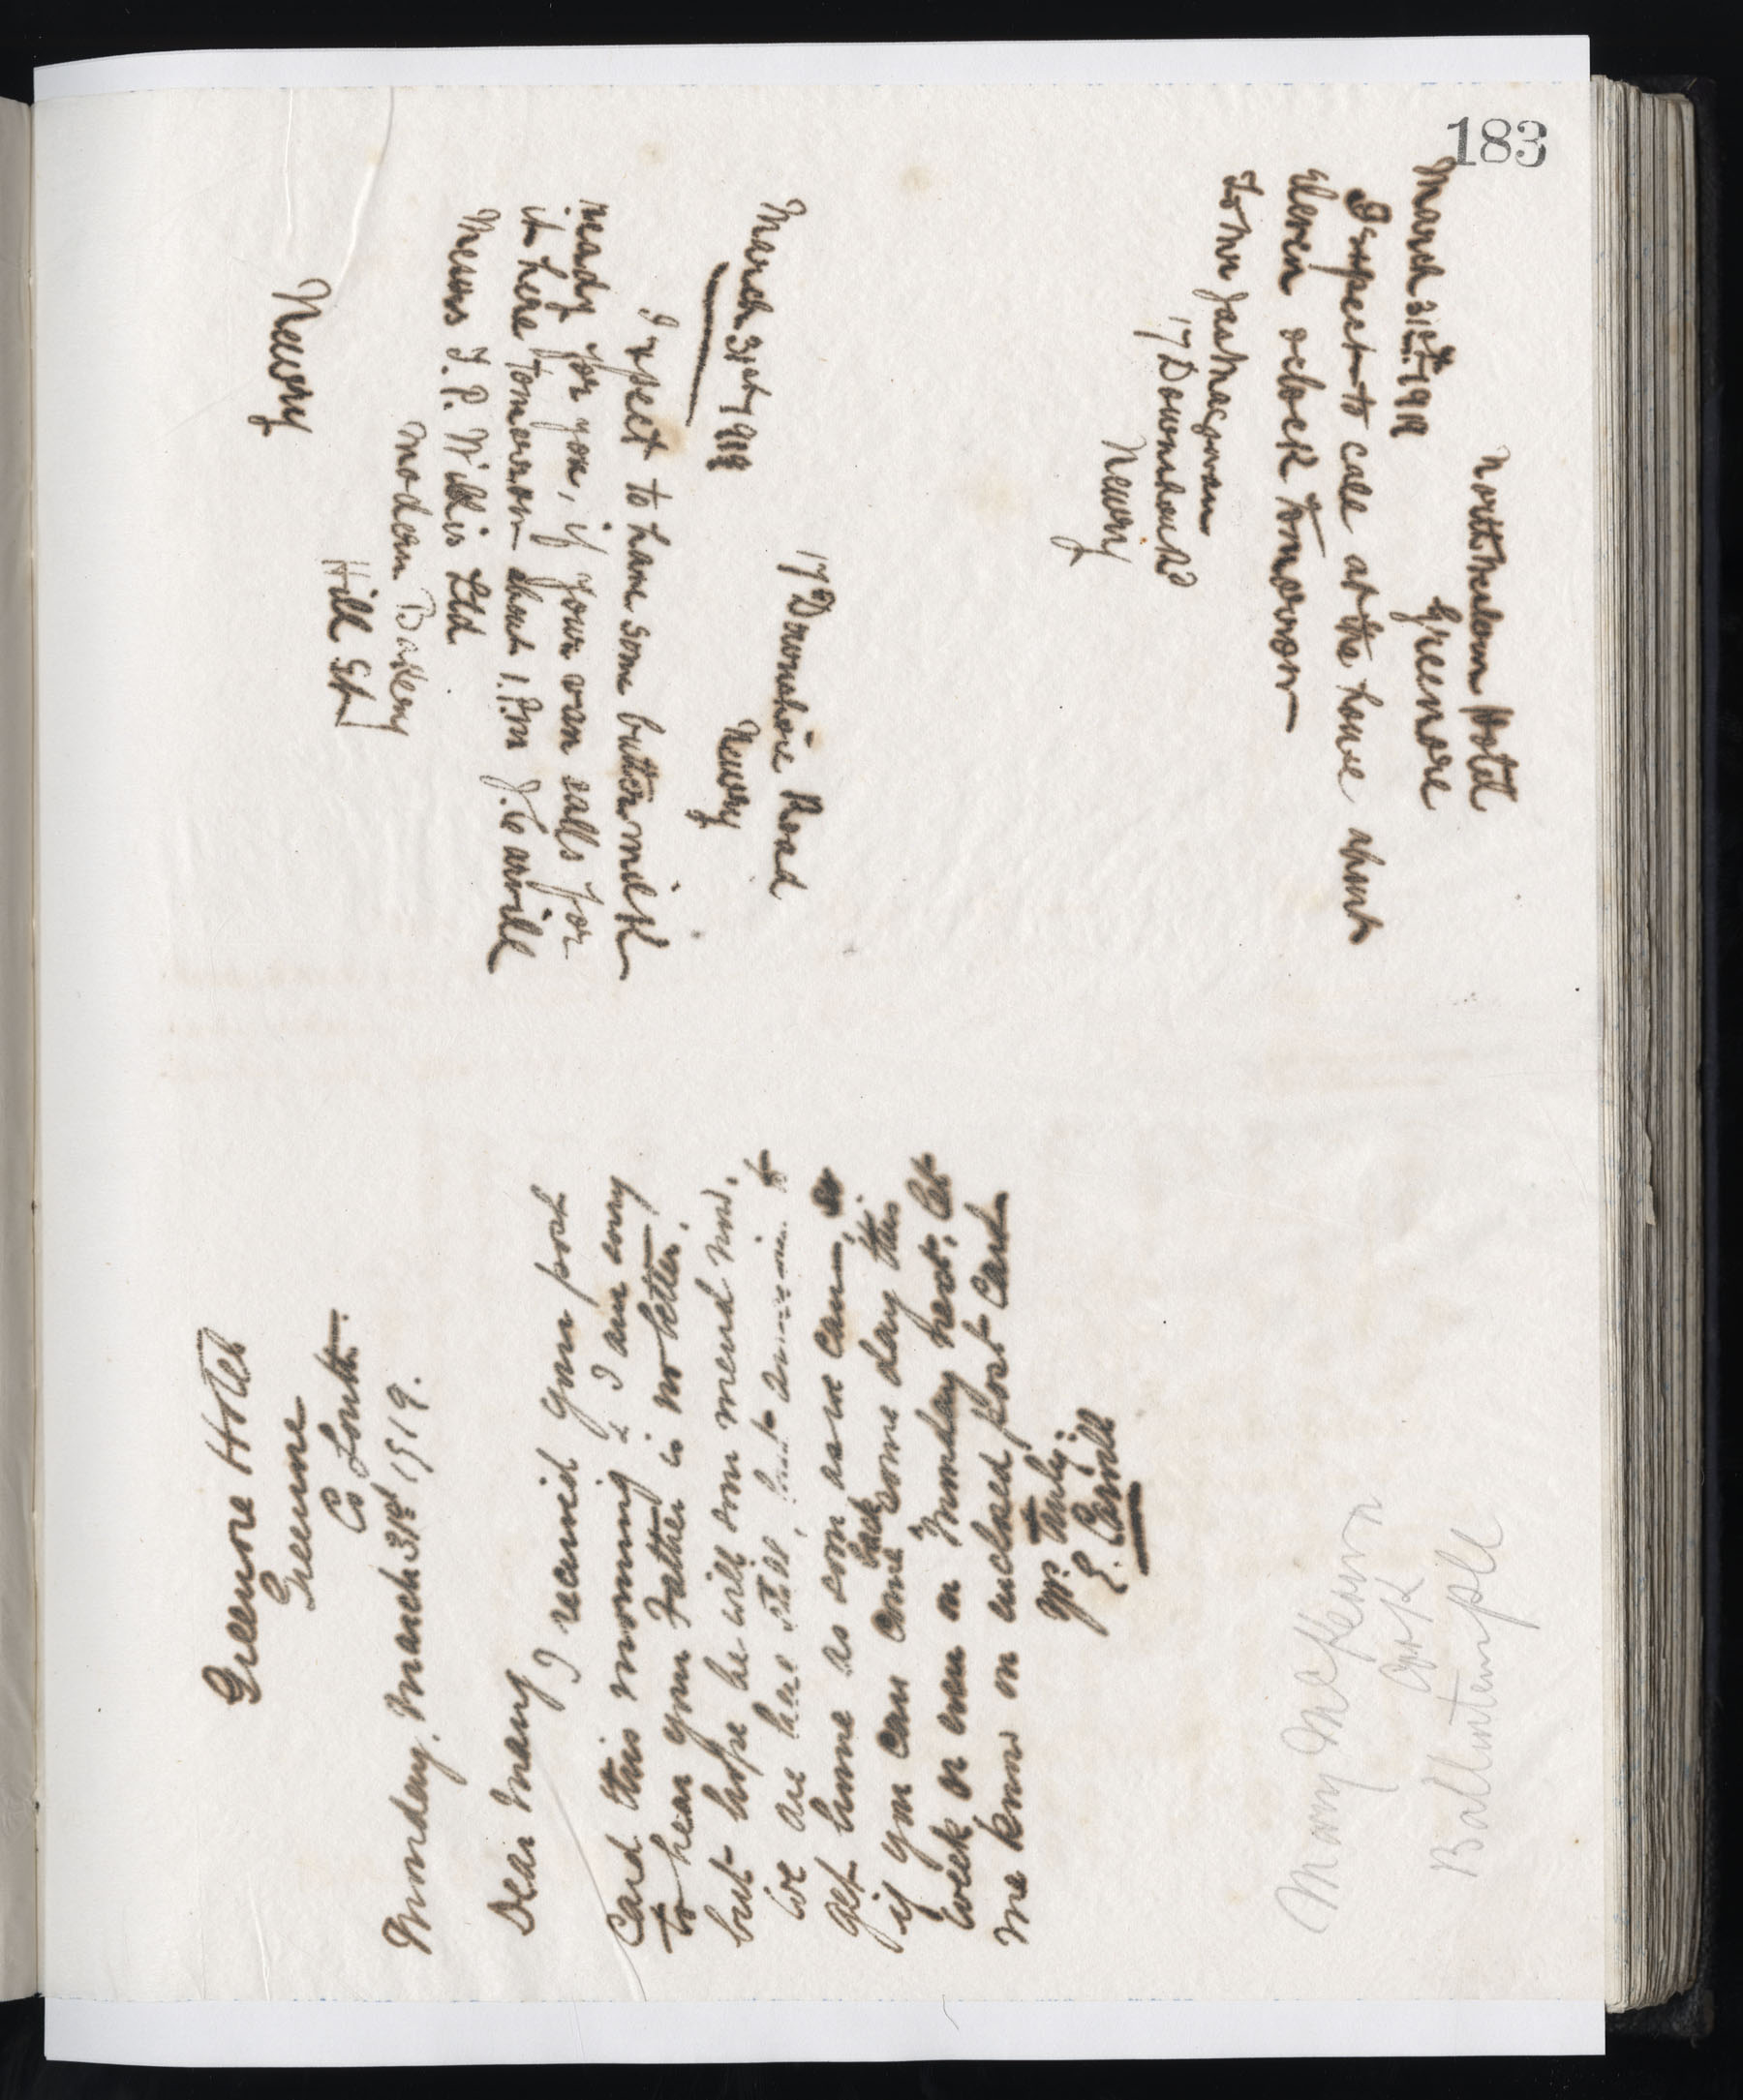 183
North Western Hotel
Greenore
March 31st 1919
I expect to call at the house about
eleven oclock tomorrow
John Jas Magowan
17 Downshire Rd
Newry
17 Downshire Road
Newry
March 31st 1919
I expect to have some buttermilk
ready for you, if your van calls for
it here tomorrow about 1. P.m J. Carvill
Messrs J. P. Willis Ltd
Modern Bakery
Hill St
Newry
Greenore Hotel
Greenore
Co Louth.
Monday. March 31st 1919.
Dear Mary
I received your post
card this morning & I am sorry
to hear your Father is no better.
but hope he will soon mend now.
We are here still, but to
get home as soon as we can,
if you can come back some day this
week or even on Monday next, let
me know on enclosed post card
yrs truly.
E. Carvill
Mary McKeown
Ballintemple